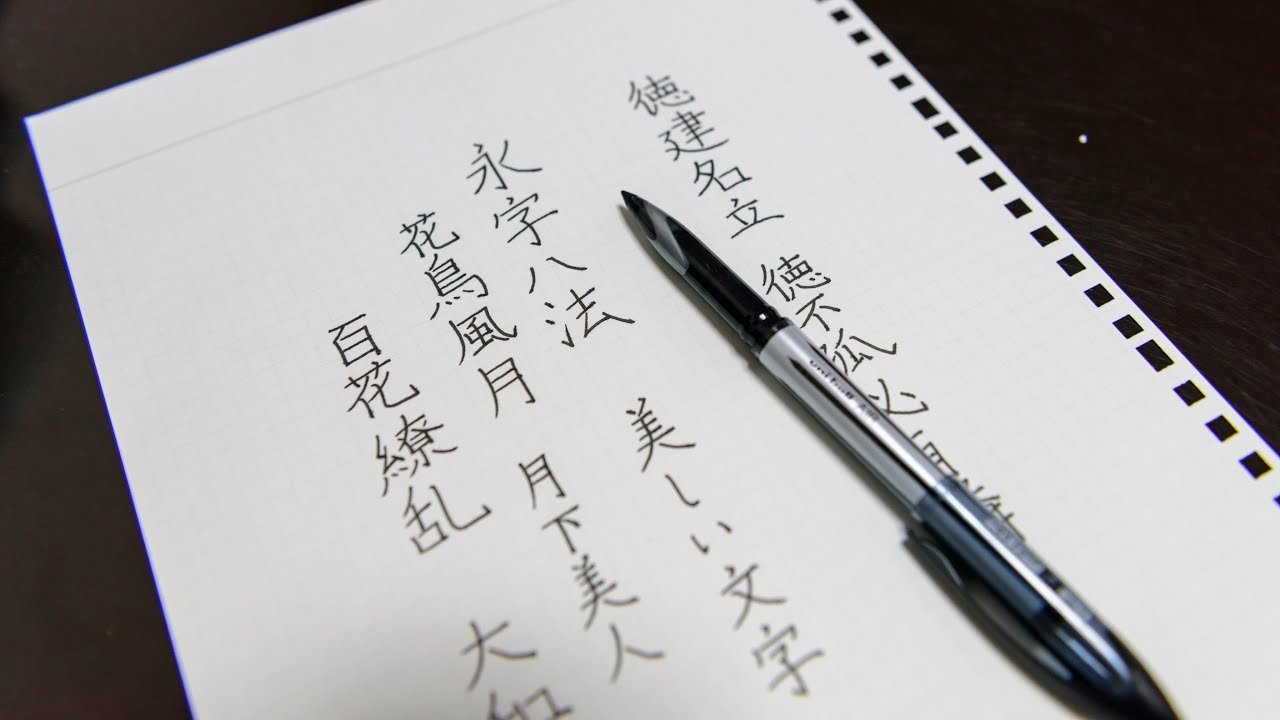 徳建名立　徳不孤必
永字八法　美しい文字
花鳥風月　月下美人
百花繚乱　大和